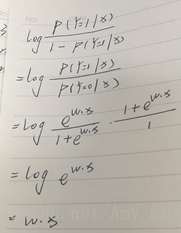 log P(Y=1|x) / 1 - P(Y=1|x)
= log P(Y=1|x) / P(Y=0|x)
= log e^{w·x} / 1+e^{w·x} · 1+e^{w·x} / 1
= log e^{w·x}
= w·x